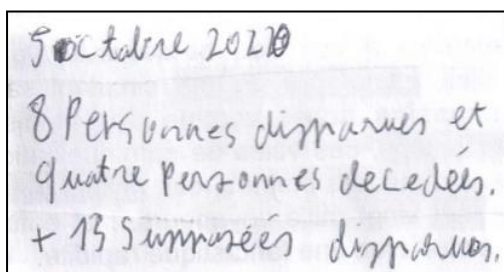 5 octobre 2020
8 Personnes disparues et
quatre Personnes decedées.
+ 13 Supposéés disparues.